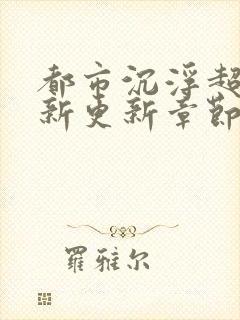 都市沉浮超
新更新章節
羅雅尔